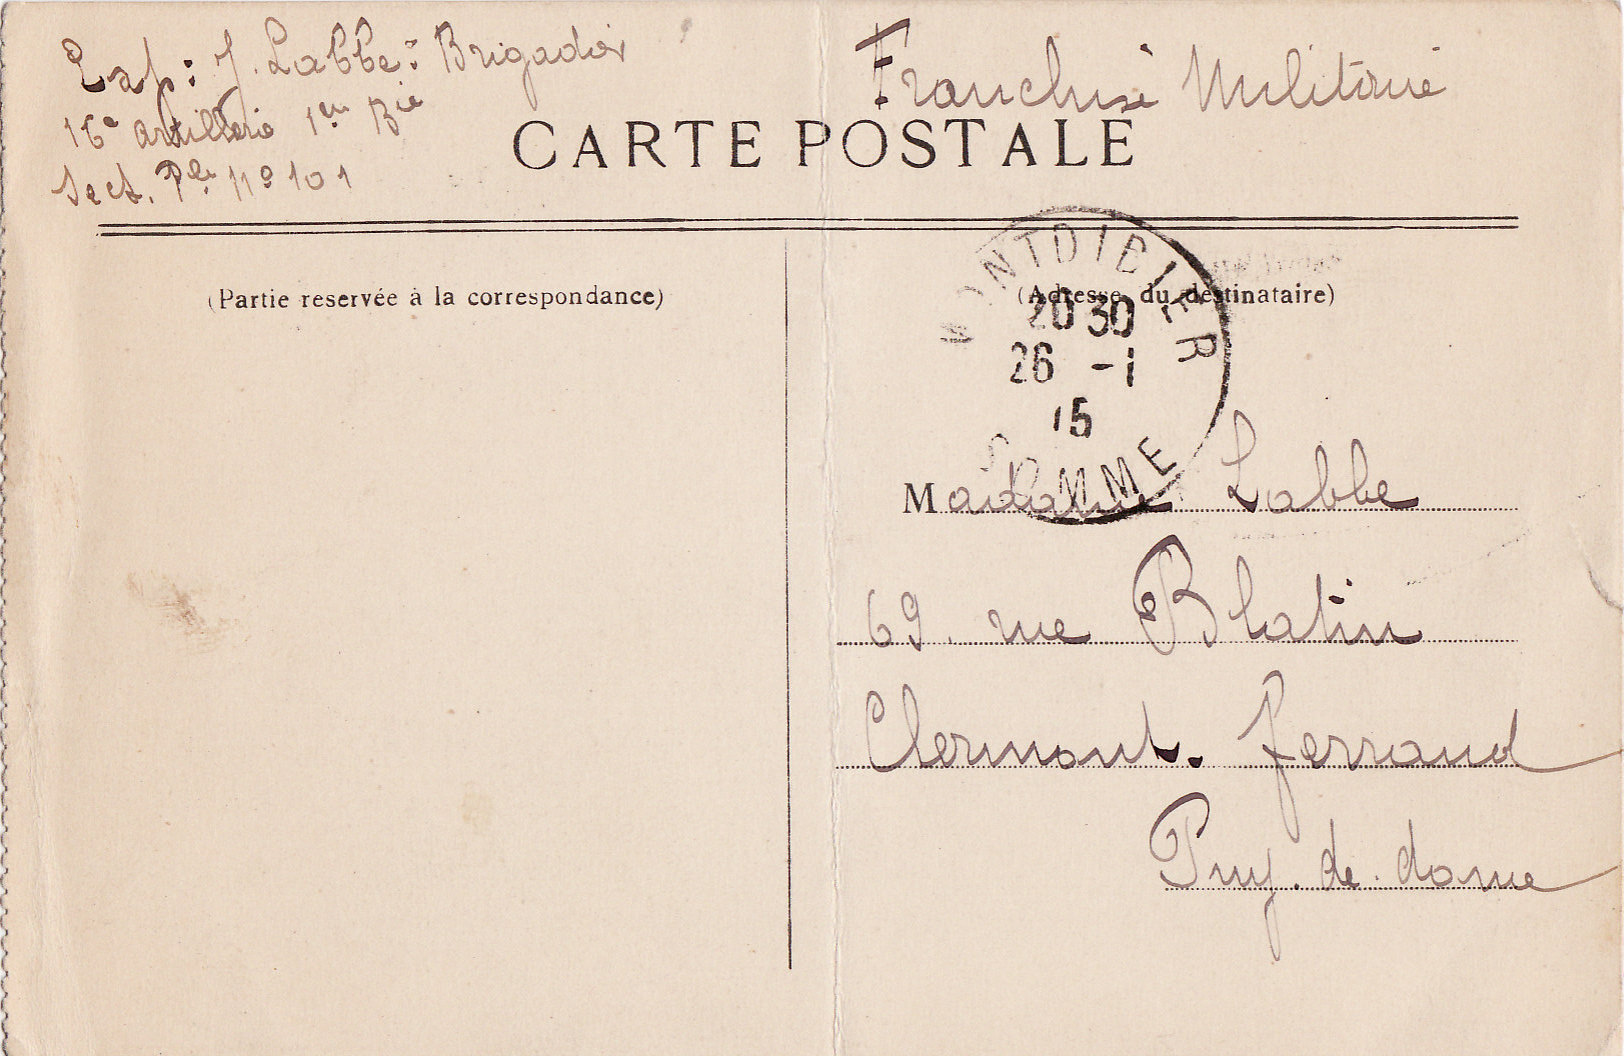 Exp: J. Labbe: Brigadier
16e artillerie 1ere Bie
Sect. Ple No 101
Franchise Militaire
CARTE POSTALE
(Partie reservée à la correspondance)
(Adresse du destinataire)
MONTDIDIER
20 30
26 -1
15
SOMME
Madame Labbe
69. rue Blatin
Clermont. ferrand
Puy. de. dome